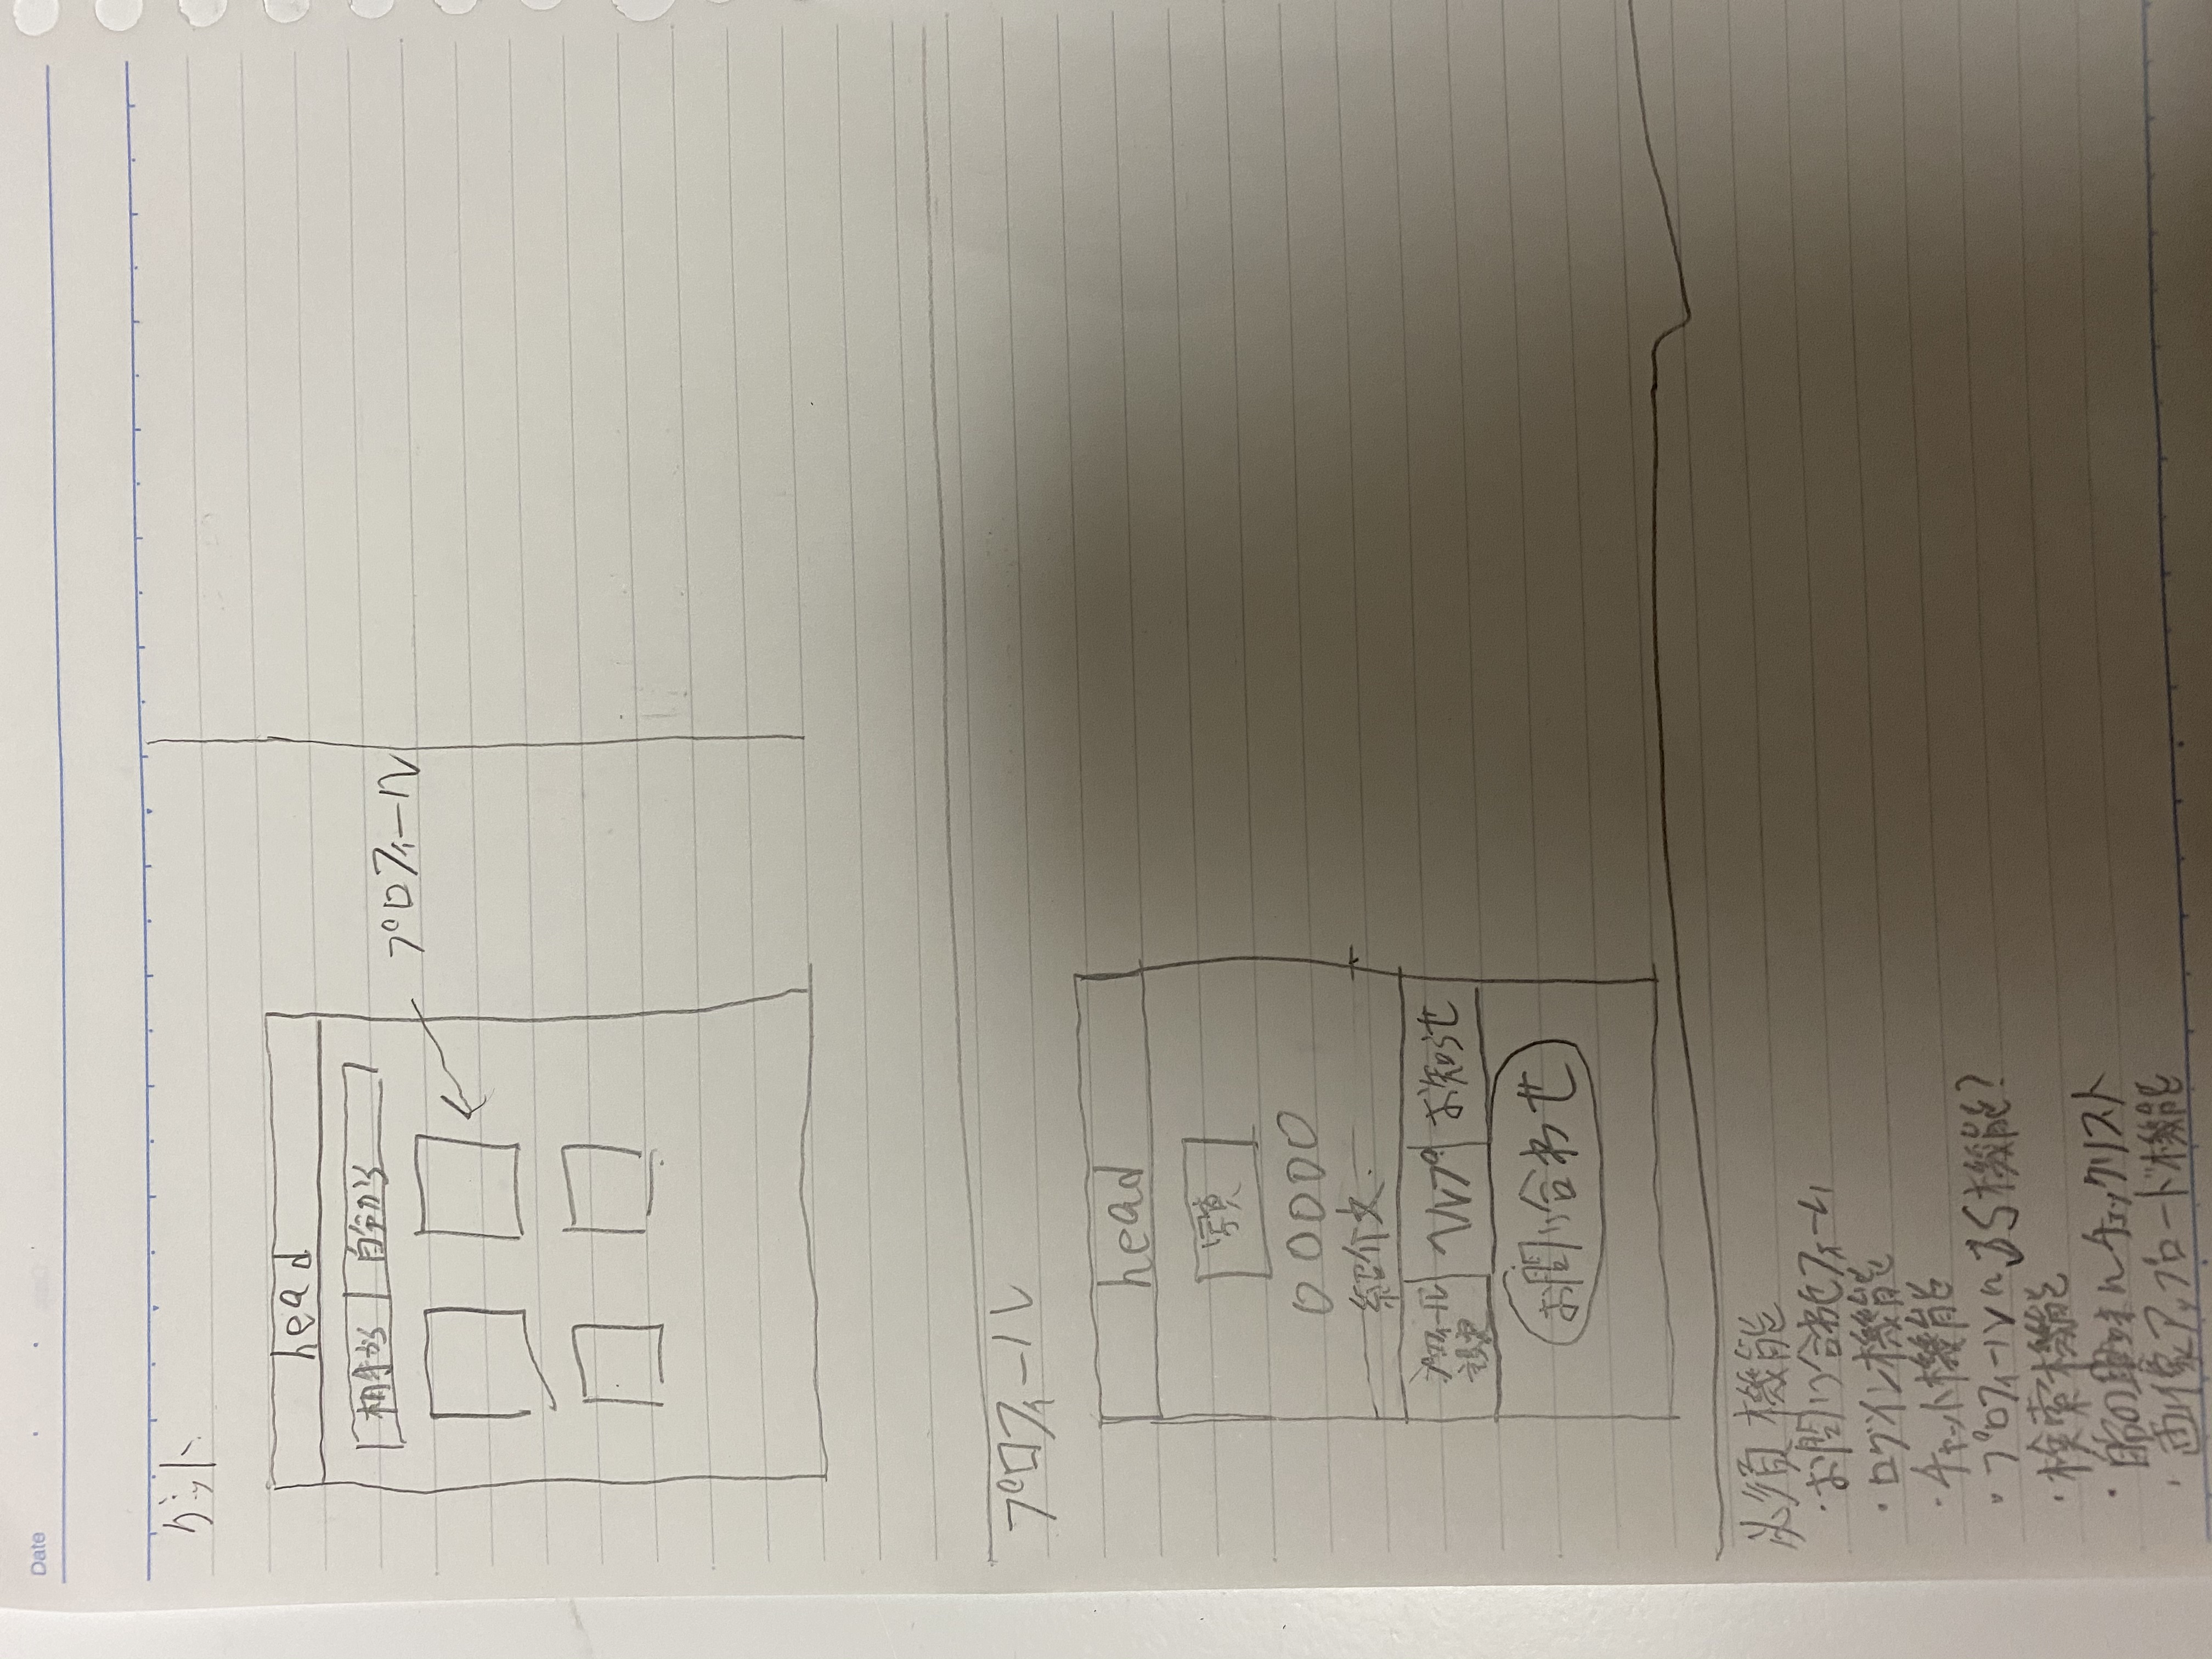 Date
head
相手から 自分から
プロフィール
プロフィール
head
写真
○○○○○
紹介文
プロフィール ヘルプ お知らせ
設定
お問い合わせ
必須機能
・お問い合わせフォーム
・ログイン機能
・チャット機能
・プロフィールに 機能?
・検索機能
・自分の興味にチェックリスト
・画像アップロード機能